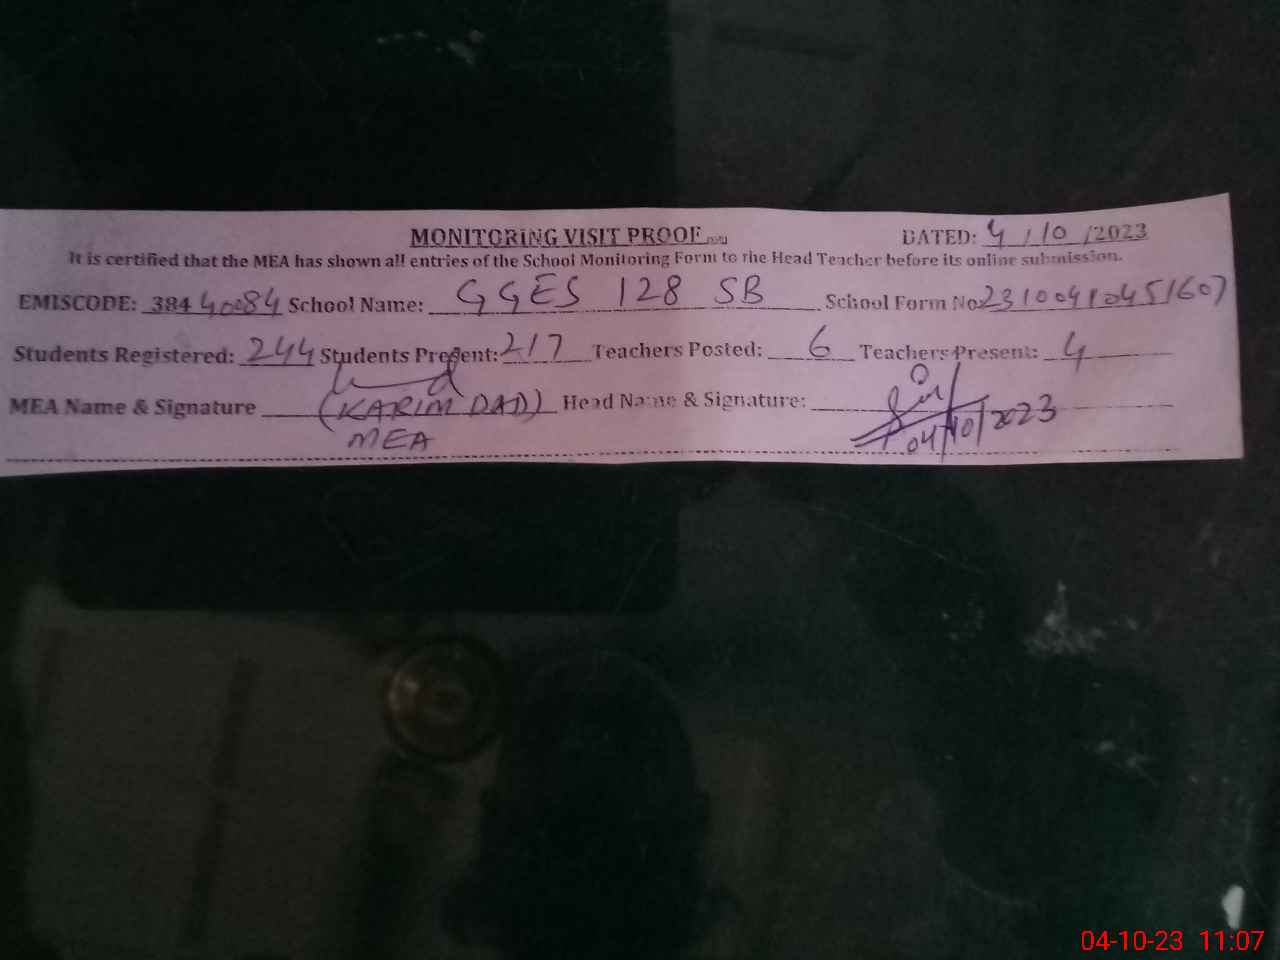 MONITORING VISIT PROOF DATED: 4/10/2023
It is certified that the MEA has shown all entries of the School Monitoring Form to the Head Teacher before its online submission.
EMISCODE: 38440084 School Name: GGES 128 SB School Form No 23100410451607
Students Registered: 244 Students Present: 217 Teachers Posted: 6 Teachers Present: 4
MEA Name & Signature (KARIM DAD) Head Name & Signature:
MEA 04/10/2023
04-10-23 11:07